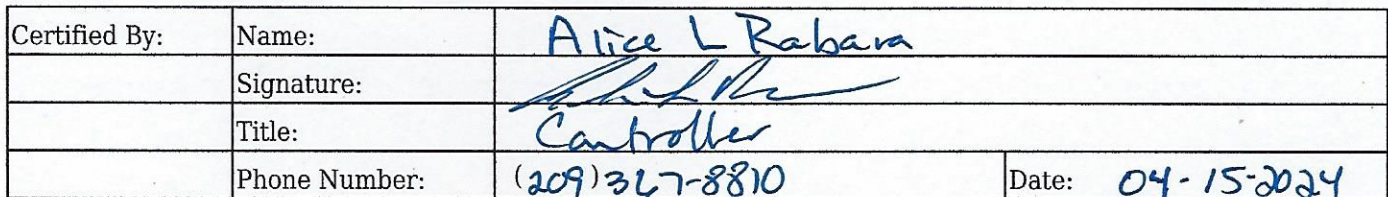 Certified By: Name: Alice L Rabara
Signature:
Title: Controller
Phone Number: (209)367-8810 Date: 04-15-2024